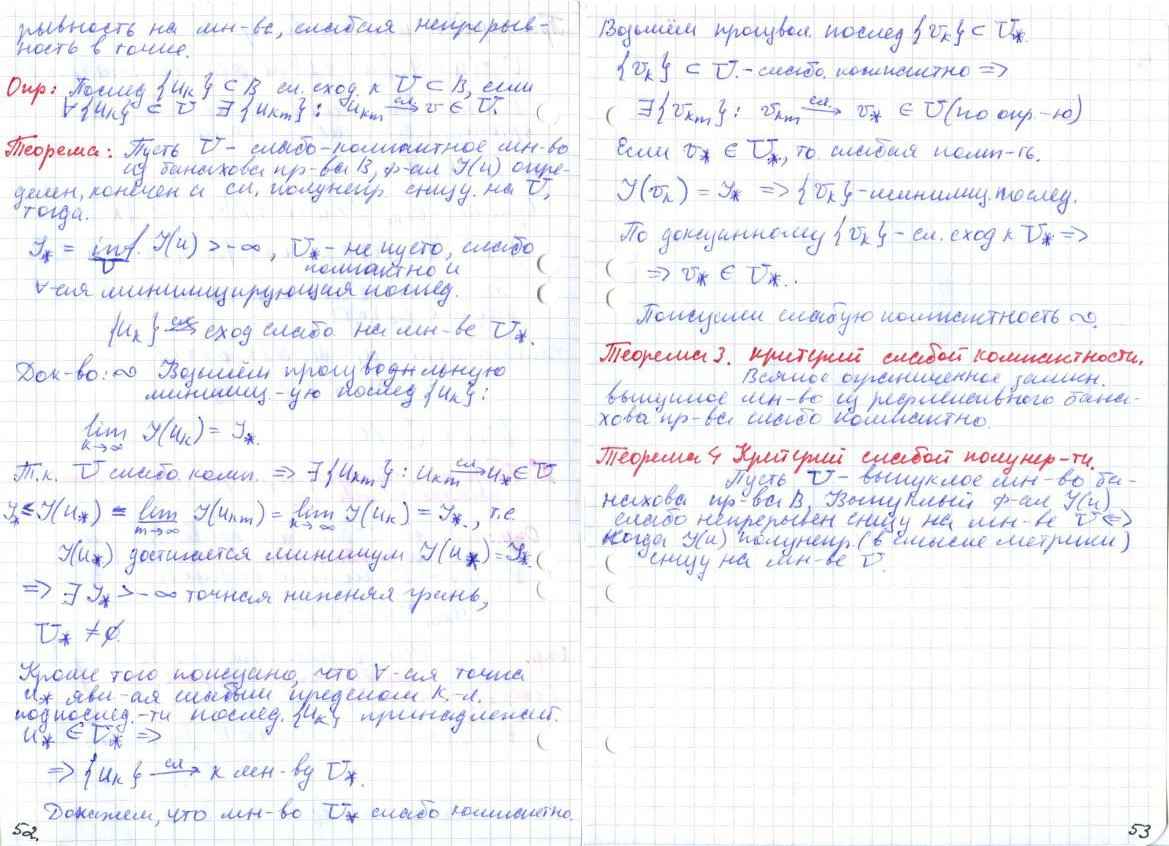 рывность на мн-ве, слабая непрерыв-
ность в точке.
Опр: Послед {uₖ} ⊂ B сл. сход. к U ⊂ B, если
∀{uₖ} ⊂ U ∃{uₖₘ}: uₖₘ —сл→ v ∈ U.
Теорема: Пусть U - слабо-компактное мн-во
из банахова пр-ва B, ф-ал J(u) опре-
делен, конечен и сл. полунепр. снизу. на U,
тогда.
J* = inf J(u) > -∞, U* - не пусто, слабо
U
компактно и
∀-ая минимизирующая послед.
{uₖ} сход слабо на мн-ве U*.
Док-во: ∾ Возьмём произвольную
минимиз.-ую послед {uₖ}:
lim J(uₖ) = J*.
k→∞
Т.к. U слабо комп. ⇒ ∃{uₖₘ}: uₖₘ —сл→ u* ∈ U
J* ≤ J(u*) = lim J(uₖₘ) = lim J(uₖ) = J*., т.е.
m→∞ k→∞
J(u*) достигается минимум J(u*) = J*
⇒ ∃ J* > -∞ точная нижняя грань,
U* ≠ ∅.
Кроме того показано, что ∀-ая точка
u* явл-ая слабым пределом к.-л.
подпослед.-ти послед. {uₖ} принадлежит.
u* ∈ U* ⇒
⇒ {uₖ} —сл→ к мн-ву U*.
Докажем, что мн-во U* слабо компактно.
52.
Возьмём произвол. послед {vₖ} ⊂ U*.
{vₖ} ⊂ U. - слабо. компактно ⇒
∃{vₖₘ}: vₖₘ —сл→ v* ∈ U (по опр-ю)
Если v* ∈ U*, то слабая комп-ть.
J(vₖ) = J* ⇒ {vₖ} - минимиз. послед.
По доказанному {vₖ} - сл. сход к U* ⇒
⇒ v* ∈ U*..
Показали слабую компактность ∾.
Теорема 3. Критерий слабой компактности.
Всякое ограниченное замкн.
выпуклое мн-во из рефлексивного бана-
хова пр-ва слабо компактно.
Теорема 4 Критерий слабой полунер-ти.
Пусть U - выпуклое мн-во ба-
нахова пр-ва B, Выпуклый ф-ал J(u)
слабо непрерывен снизу на мн-ве U ⇔
когда J(u) полунепр. (в смысле метрики)
снизу на мн-ве U.
53